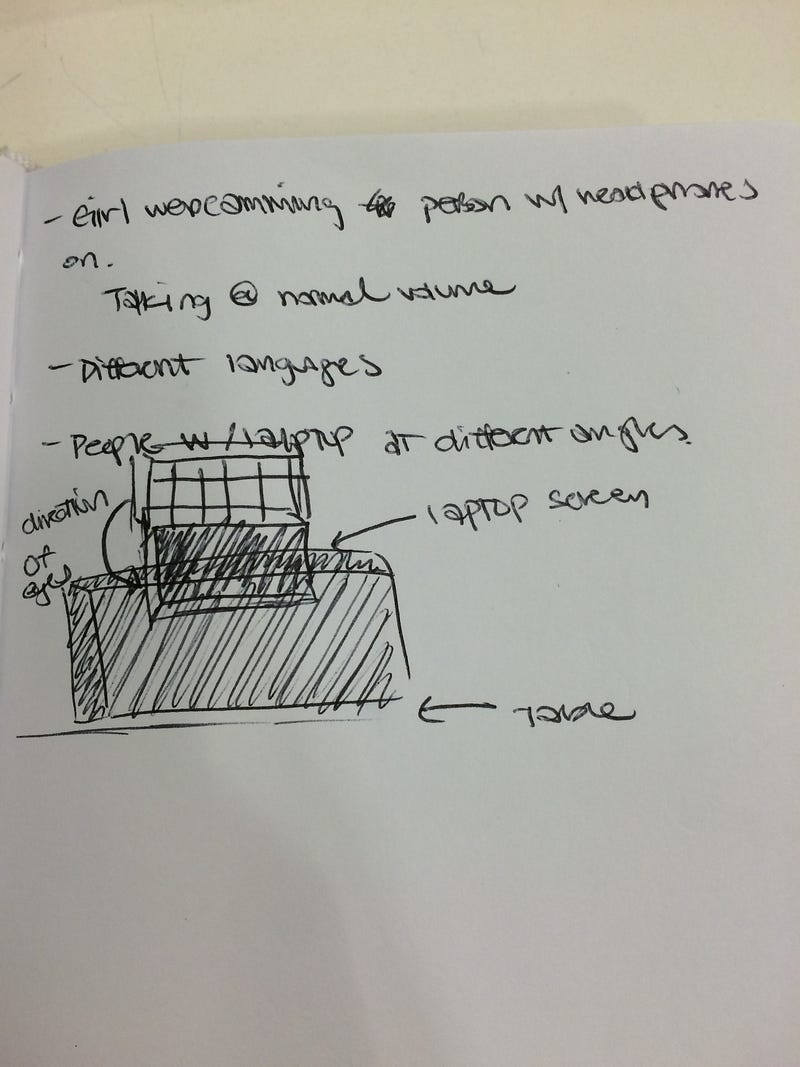 - Girl webcamming person w/ headphones
on.
Talking @ normal volume
- Different languages
- People w/ laptop at different angles.
direction
of
eyes
laptop screen
Table